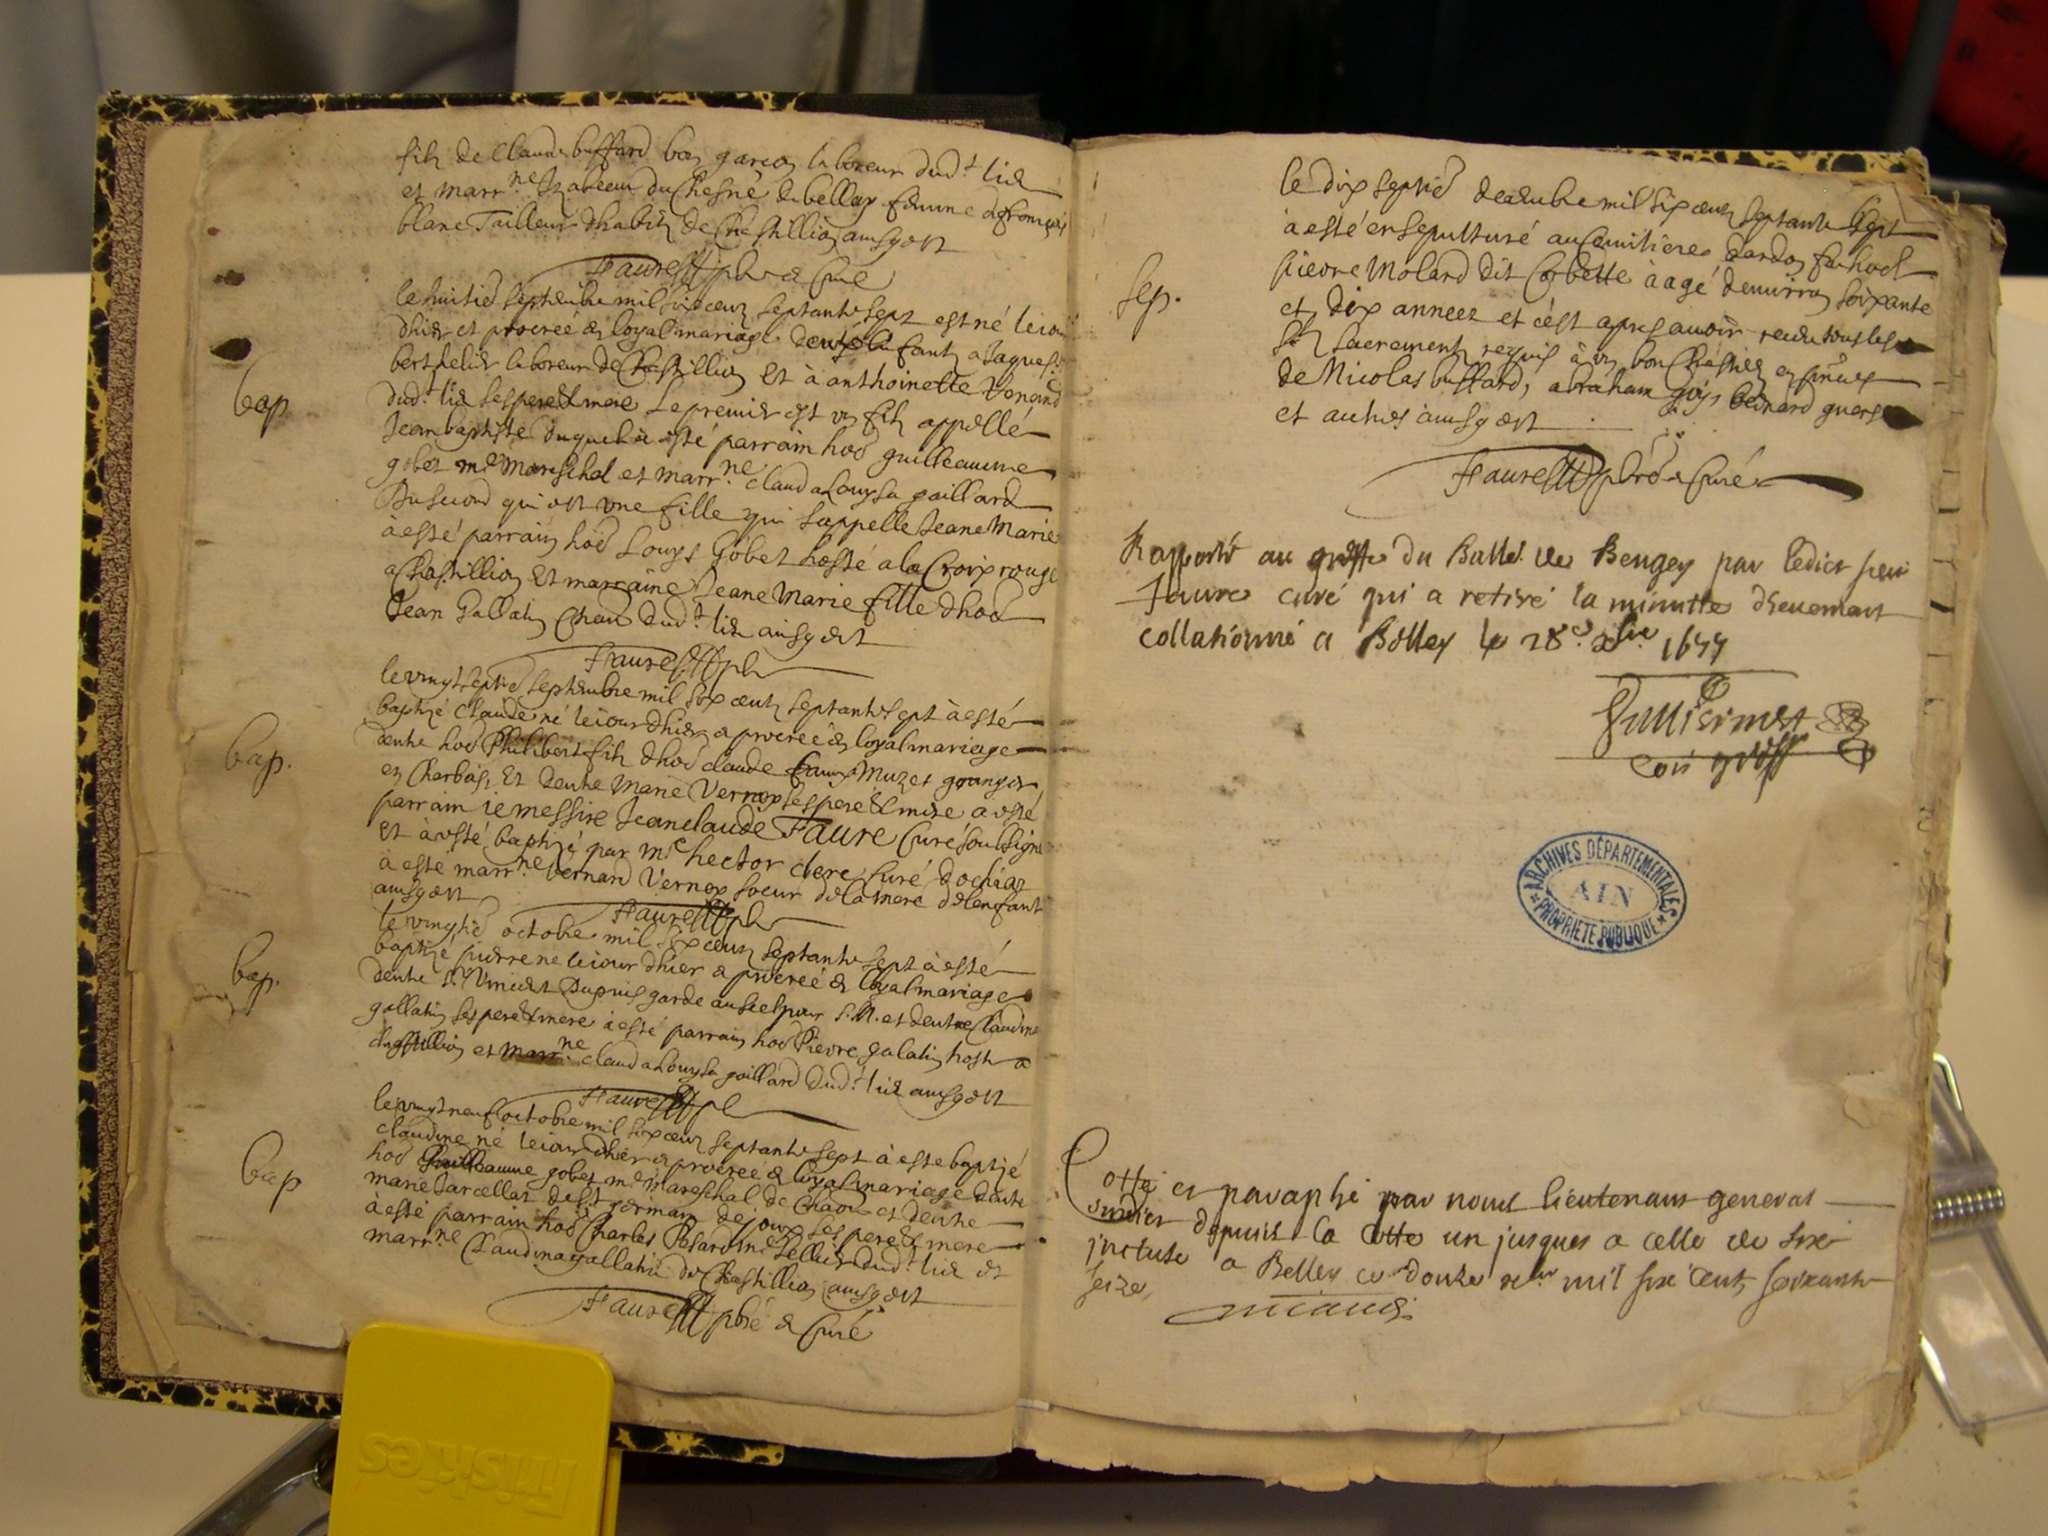 filz de Claude buffard bon garcon laboreur dud.t lieu
et marr.ne du Chesne de bellay femme a francois
blanc Tailleur dhabitz de Chastillion ainsy est
Faure pbre & Curé
bap
le huitie septembre mil six cent septante sept est né le iour
dhier et procreé de loyal mariage deux enfantz a Jaques
berthelier laboreur de Chastillion Et à anthoinette Venand
dud.t lieu ses pere & mere Le premier est un filz appellé
Jean baptiste duquel a esté parrain hod guilleaume
gobet m.e mareschal et marr.ne claudaLouysa gaillard
Du second qui est une fille qui sappelle Jeane Marie
à esté parrain hod Louys Gobet hosté a la Croix rouge
a Chastillion Et marraine Jeane Marie fille dhod
Jean Gallatin dud.t lieu ainsy est
Faure
bap.
le vingt septie septembre mil six cent septante sept à esté
baptizé claude né le iour dhier & procreé de loyal mariage
dentre hod Philibert filz dhod claude Muzet granger
en Et dentre Marie Vernox ses pere & mere a esté
parrain ie messire Jeanclaude Faure Curé soubsigné
Et à esté baptizé par m.e hector clerc Curé dochiaz
à esté marr.ne bernard Vernox soeur de la mere de lenfant
ainsy est
Faure
bap.
le vingtie octobre mil six cent septante sept à esté
baptizé pierre ne le iour dhier & procreé de loyal mariage
dentre Sr Vincent Dupuis garde au sel pour S.M. et dentre Claudine
gallatin ses pere & mere à esté parrain hod Pierre galatin hoste a
chastillion et marr.ne claudaLouysa gaillard dud.t lieu ainsy est
Faure
bap
le vingt neuf octobre mil six cent septante sept à este baptizé
claudine né le iour dhier & procreé de loyal mariage dentre
hod Guilleaume gobet m.e mareschal de et dentre
marie Jarcellat de St germain de joux ses pere & mere
à esté parrain hod Charles m.e sellier dud.t lieu et
marr.ne Claudina gallatin de Chastillion ainsy est
Faure pbré & Curé
le dix septie decembre mil six cent septante sept
à esté ensepulturé au cemitiere dardon hod
Sep.
pierre Molard dit Corbette à agé denviron soixante
et dix annees et c'est apres avoir receu tous les
Stz sacrementz requis à un bon Chrestien en presence
de Nicolas buffard, abraham goys bernard guers
et autres ainsy est
Faure pbré & Curé
Rapporté au greffe du Balle. de Beugey par ledict sieur
Faure curé qui a retiré la minutte deuement
collationné a Belley le 28e xbre 1677
ARCHIVES DÉPARTEMENTALES
AIN
PROPRIÉTÉ PUBLIQUE
Cotté et paraphé par nous lieutenant general
depuis la Cotte un jusques a celle de six
incluse a Belley ce douze mil six cent soixante
seize,
Friskies